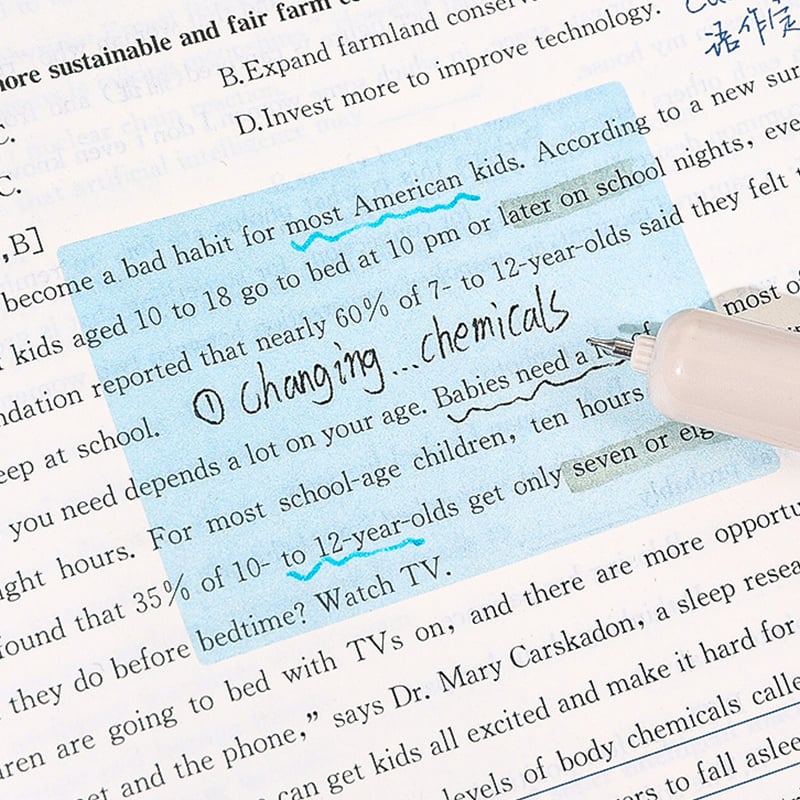 more sustainable and fair farm
B.Expand farmland conserv
D.Invest more to improve technology.
语作定
C.
C.
,B]
become a bad habit for most American kids. According to a new sur
kids aged 10 to 18 go to bed at 10 pm or later on school nights, eve
ndation reported that nearly 60% of 7- to 12-year-olds said they felt
eep at school.
① changing...chemicals
you need depends a lot on your age. Babies need a most of
ight hours. For most school-age children, ten hours
found that 35% of 10- to 12-year-olds get only seven or eig
they do before bedtime? Watch TV.
ren are going to bed with TVs on, and there are more opportu
et and the phone,” says Dr. Mary Carskadon, a sleep resea
can get kids all excited and make it hard for
levels of body chemicals calle
ers to fall aslee